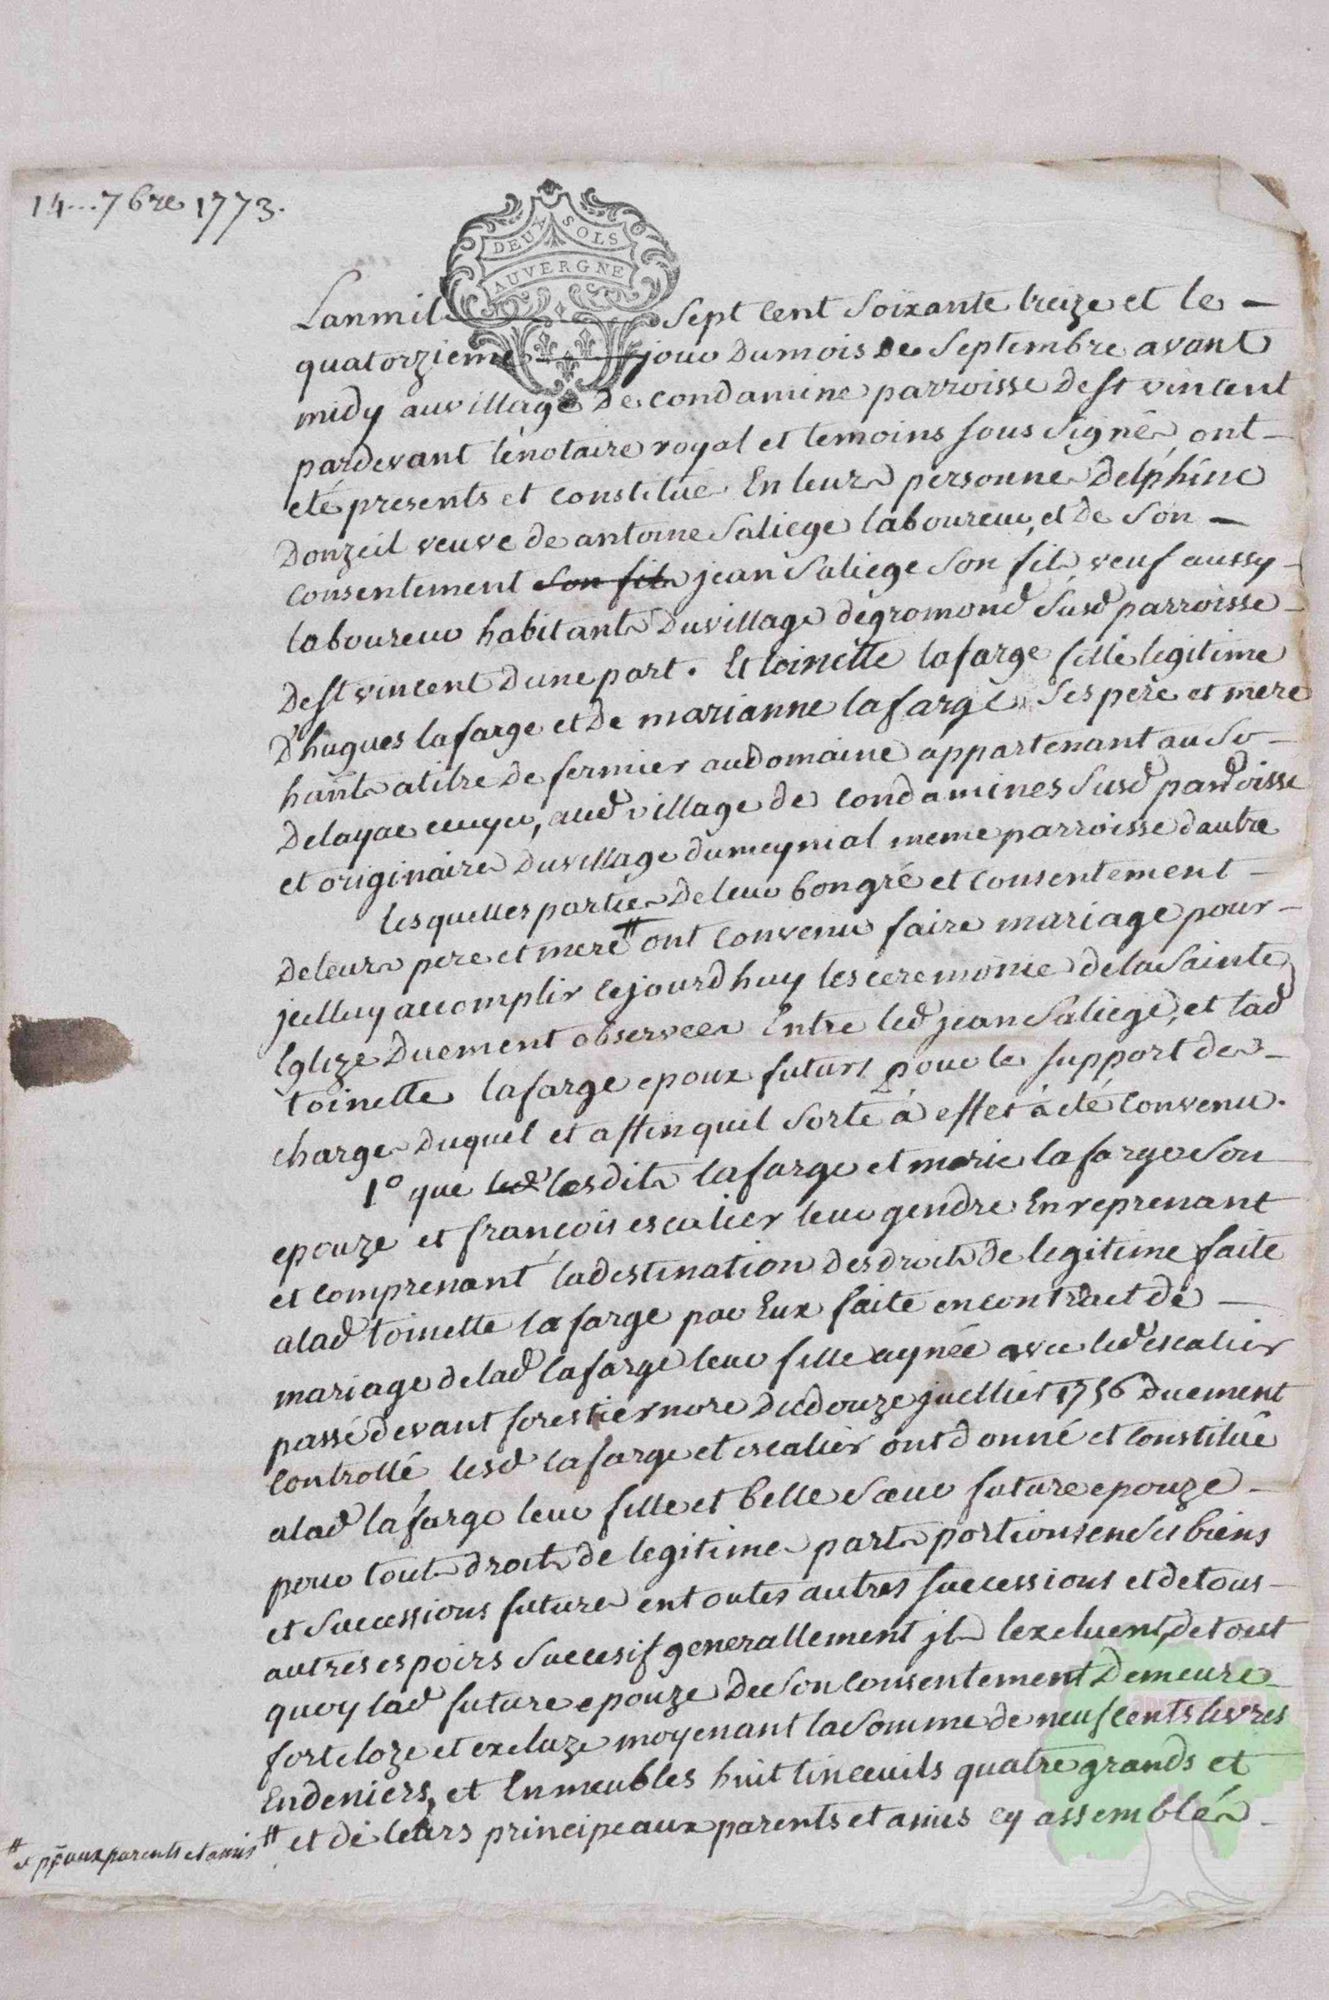 14...7bre 1773.
DEUX SOLS
AUVERGNE
Lanmil Sept cent soixante treize et le
quatorzieme jour dumois de Septembre avant
midy auvillage de condamine parroisse de st vincent
pardevant lenotaire royal et temoins sous signés ont
eté presents et constitué En leurs personnes Delphine
Donzeil veuve de antoine Saliege laboureur, et de Son
consentement son fils jean Saliege Son fils veuf aussy
laboureur habitants Duvillage degromond Susd parroisse
de st vincent dune part. Et toinette lafarge fille legitime
D'hugues lafarge et de marianne lafarge Ses pere et mere
hants atitre de fermier audomaine appartenant au Sr
Delayac ecuyer, aud village de condamines Susd parroisse
et originaire Duvillage dumeynial meme parroisse dautre
lesquelles parties Deleur bongré et consentement
deleurs pere et mere # ont convenu faire mariage pour
jcelluy accomplir cejourdhuy les ceremonie delasainte
Eglize Duement observées Entre led jean Saliege, et lad
toinette lafarge epoux futurs pour le support des
charges duquel et affin quil Sorte á effet á eté convenu.
1° que led lesdits lafarge et marie lafarge Son
epouze et françois escalier leur gendre En reprenant
et comprenant ladestination desdroits de legitime faite
alad toinette lafarge par Eux faite encontract de
mariage delad lafarge leur fille aynée avec led escalier
passé devant forestier nore Ledouze juelliet 1756 duement
controllé lesd lafarge et escalier ont donné et constitué
alad lafarge leur fille et belle Sœur future epouze
pour touts droits de legitime parts portions en Ses biens
et Successions futures entoutes autres successions et detous
autres espoirs Succesif generallement jls lexcluent, detout
quoy lad future epouze deson consentement Demeure
forcloze et excluze moyenant lasomme de neufcents livres
Endeniers, et Enmeubles huit linceuils quatre grands et
# et de leurs principeaux parents et amis cy assemblés
# et ppaux parents et amis